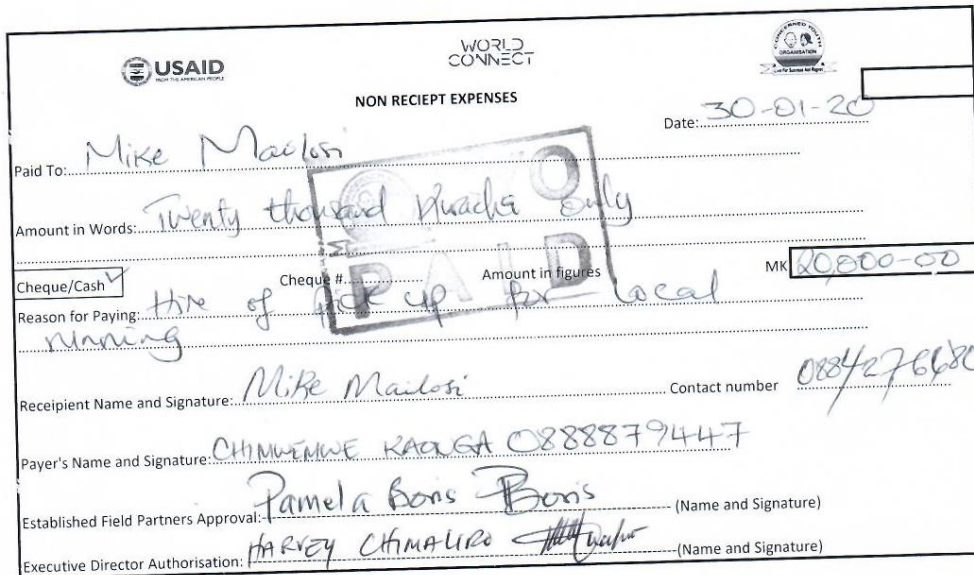 USAID
FROM THE AMERICAN PEOPLE
WORLD
CONNECT
CONCERNED YOUTH
ORGANISATION
NON RECIEPT EXPENSES
Date: 30-01-20
Paid To: Mike Mailosi
Amount in Words: Twenty thousand Kwacha only
PAID
Cheque/Cash ✓ Cheque #............ Amount in figures MK 20,000-00
Reason for Paying: Hire of pick up for local
running
Receipient Name and Signature: Mike Mailosi Contact number 0884276680
Payer's Name and Signature: CHIMWEMWE KAONGA 0888879447
Established Field Partners Approval: Pamela Boris Boris (Name and Signature)
Executive Director Authorisation: HARVEY CHIMALIRO (Name and Signature)